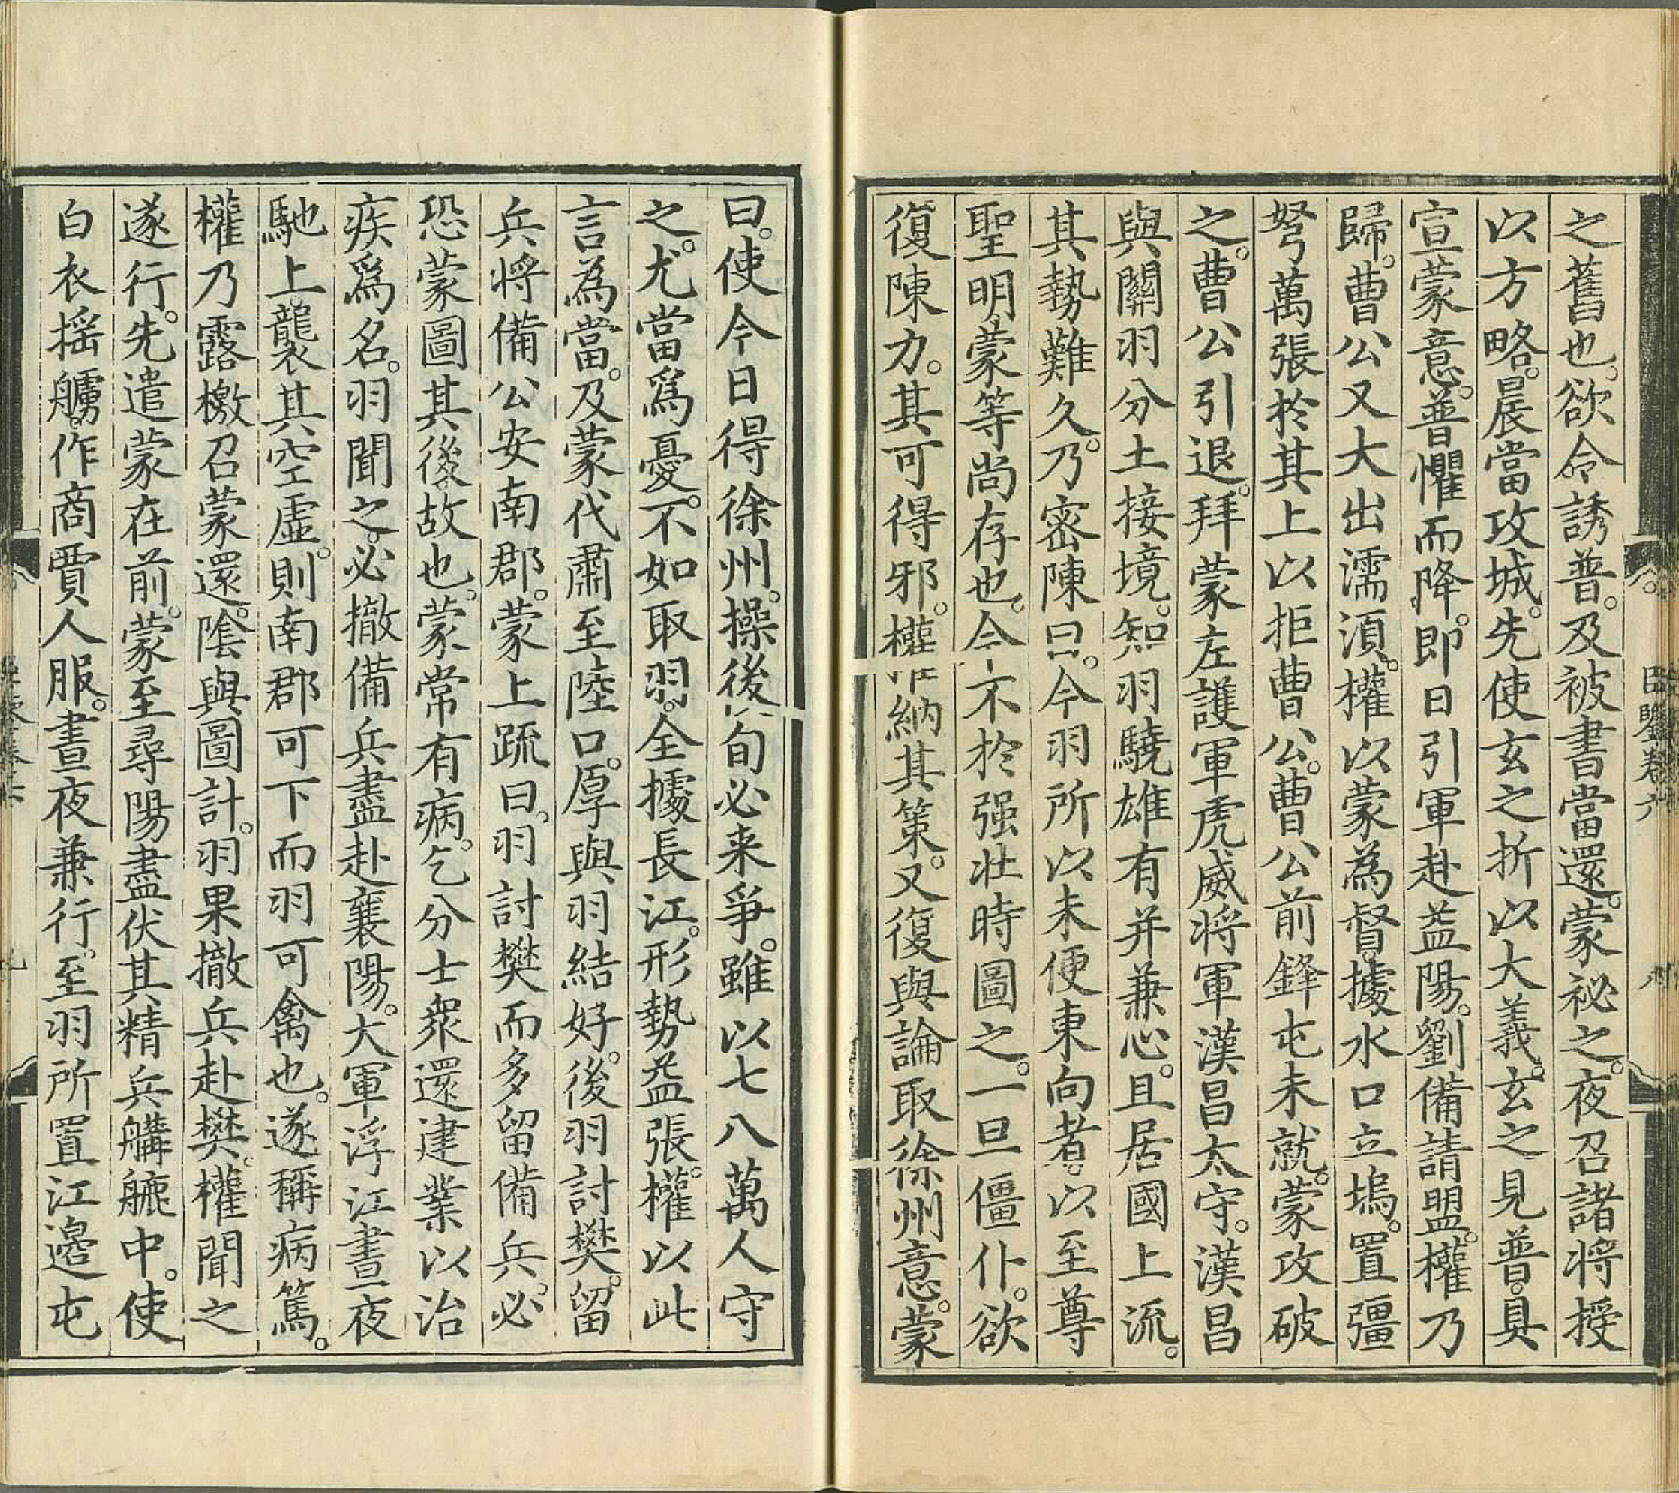 之舊也。欲令誘普。及被書當還。蒙秘之。夜召諸將授
以方略。晨當攻城。先使玄之折以大義。玄之見普。具
宣蒙意。普懼而降。即日引軍赴益陽。劉備請盟。權乃
歸。曹公又大出濡湏。權以蒙為督。據水口立塢。置彊
弩萬張於其上以拒曹公。曹公前鋒屯未就。蒙攻破
之。曹公引退。拜蒙左護軍虎威將軍漢昌太守。漢昌
與關羽分土接境。知羽驍雄有并兼心。且居國上流。
其勢難久。乃密陳曰。今羽所以未便東向者。以至尊
聖明。蒙等尚存也。今不於强壯時圖之。一旦僵仆。欲
復陳力。其可得邪。權納其策。又復與論取徐州意。蒙
曰。使今日得徐州。操後旬必来爭。雖以七八萬人守
之。尤當爲憂。不如取羽。全據長江。形勢益張。權以此
言為當。及蒙代肅至陸口。厚與羽結好。後羽討樊。留
兵將備公安南郡。蒙上疏曰。羽討樊而多留備兵。必
恐蒙圖其後故也。蒙常有病。乞分士衆還建業以治
疾爲名。羽聞之。必撤備兵盡赴襄陽。大軍浮江晝夜
馳上襲其空虛。則南郡可下而羽可禽也。遂稱病篤。
權乃露檄召蒙還。陰與圖計。羽果撤兵赴樊。權聞之
遂行。先遣蒙在前。蒙至尋陽盡伏其精兵𦪇𦪭中。使
白衣摇艣。作商賈人服。晝夜兼行。至羽所置江邉屯